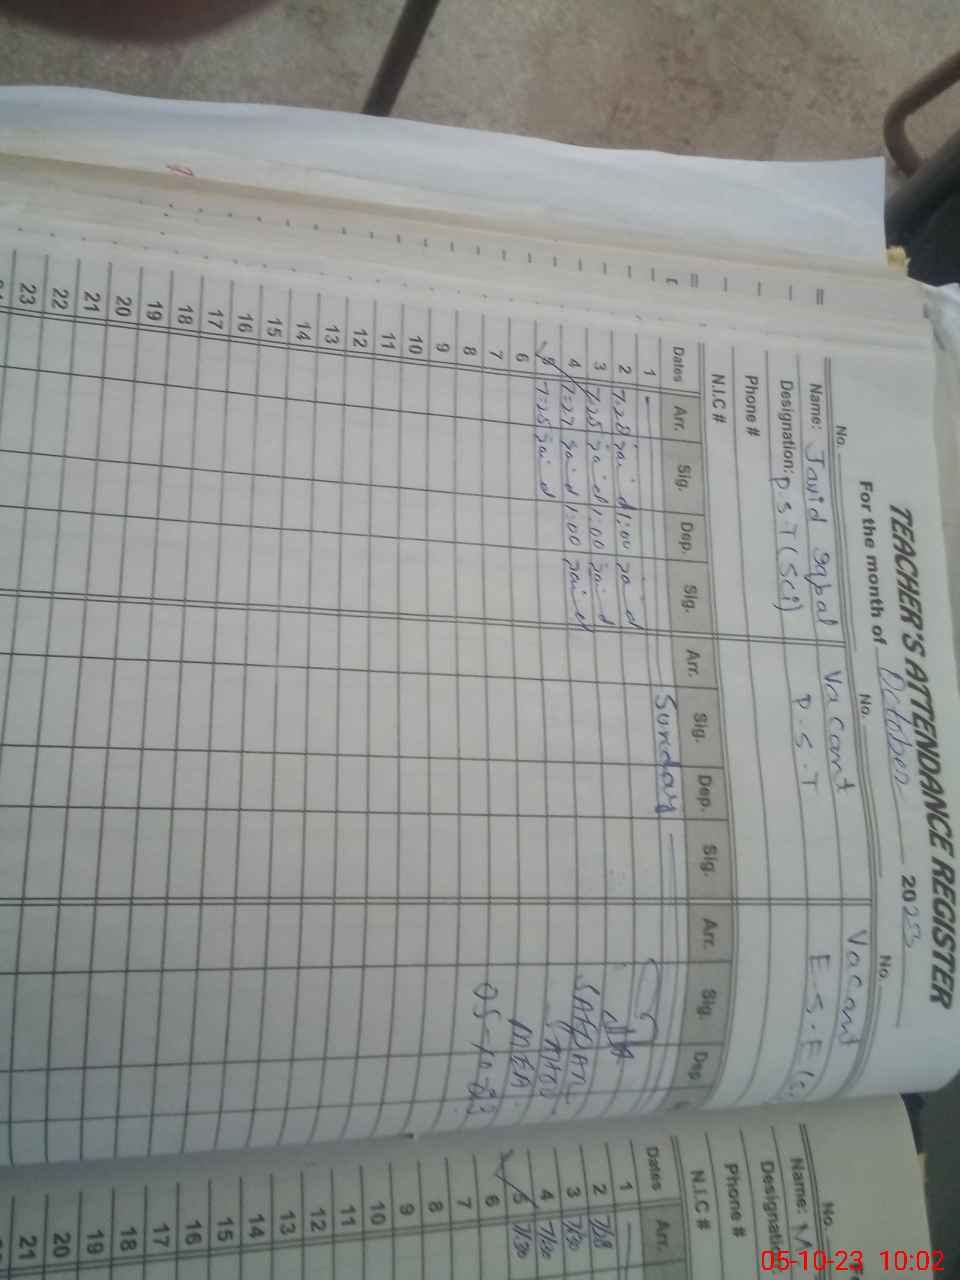 TEACHER'S ATTENDANCE REGISTER
For the month of October 2023
No. No. No.
Name: Javid Iqbal Vacant Vacant
Designation: P.S.T (Sci) P.S.T E.S.E
Phone #
N.I.C #
Dates Arr. Sig. Dep. Sig. Arr. Sig. Dep. Sig. Arr. Sig. Dep
1 - Sunday
2 7:28 1:00
3 7:28 1:00
4 7:27 1:00
5 7:25
6 MEA
7 05-10-23
8
9
10
11
12
13
14
15
16
17
18
19
20
21
22
23
No.
Name: M
Designati
Phone #
N.I.C #
Dates Arr.
1
2 7/28
3 7/30
4 7/30
5 7/30
6
7
8
9
10
11
12
13
14
15
16
17
18
19
20
21
05-10-23 10:02